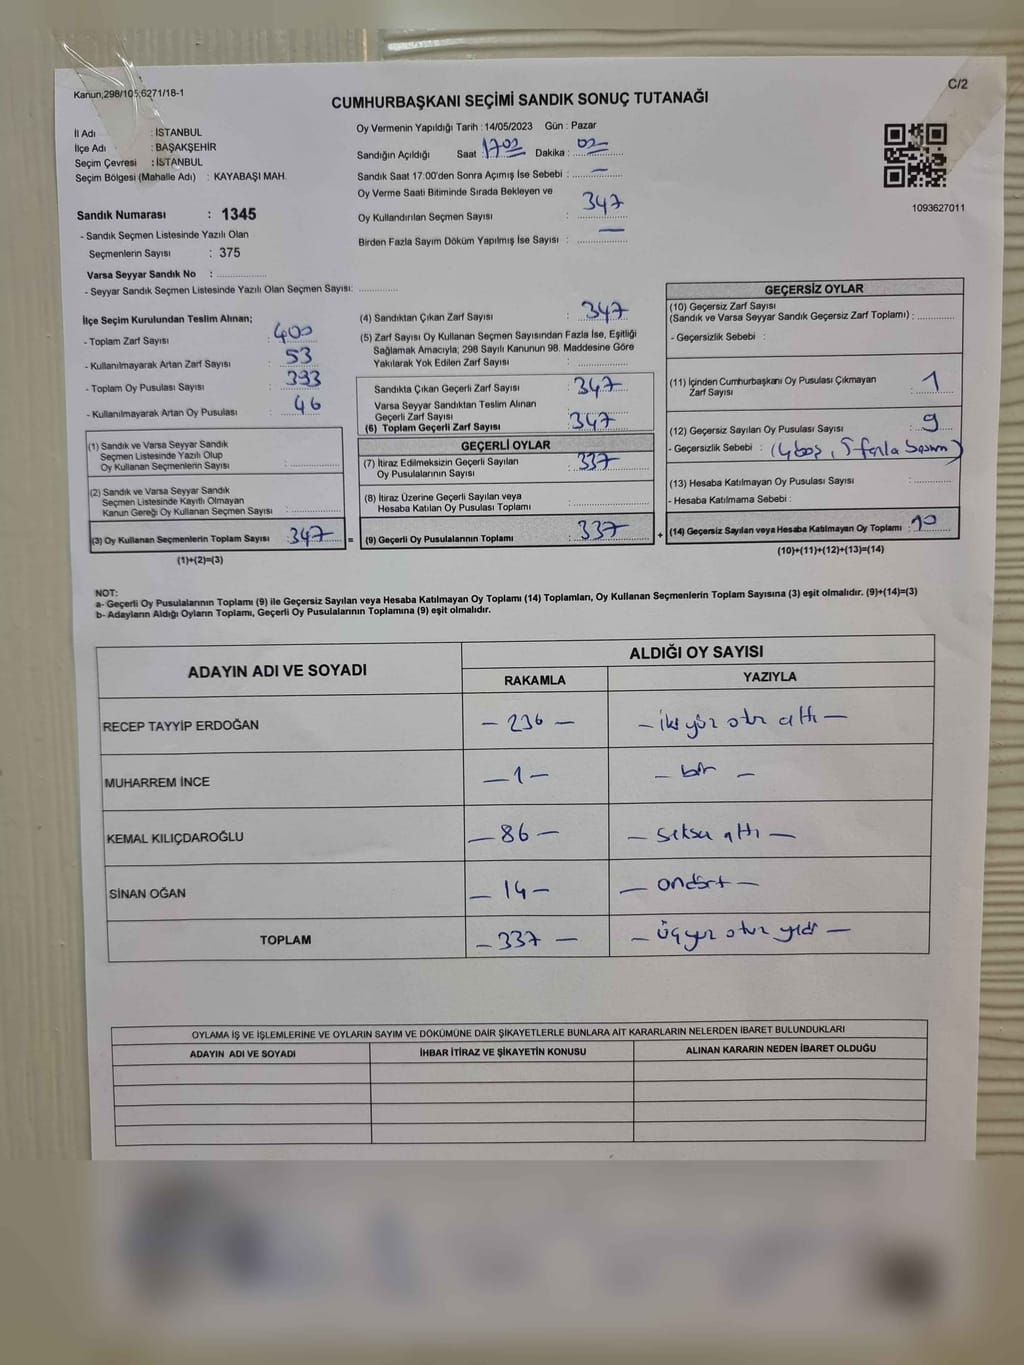 Kanun,298/105,6271/18-1
C/2
CUMHURBAŞKANI SEÇİMİ SANDIK SONUÇ TUTANAĞI
İl Adı : İSTANBUL
İlçe Adı : BAŞAKŞEHİR
Seçim Çevresi : İSTANBUL
Seçim Bölgesi (Mahalle Adı) : KAYABAŞI MAH.
Sandık Numarası : 1345
- Sandık Seçmen Listesinde Yazılı Olan
Seçmenlerin Sayısı : 375
Varsa Seyyar Sandık No :
- Seyyar Sandık Seçmen Listesinde Yazılı Olan Seçmen Sayısı:
Oy Vermenin Yapıldığı Tarih : 14/05/2023 Gün : Pazar
Sandığın Açıldığı Saat 17:00 Dakika :
Sandık Saat 17:00'den Sonra Açımış İse Sebebi : —
Oy Verme Saati Bitiminde Sırada Bekleyen ve
Oy Kullandırılan Seçmen Sayısı : 347
Birden Fazla Sayım Döküm Yapılmış İse Sayısı : —
1093627011
İlçe Seçim Kurulundan Teslim Alınan;
- Toplam Zarf Sayısı : 400
- Kullanılmayarak Artan Zarf Sayısı : 53
- Toplam Oy Pusulası Sayısı : 393
- Kullanılmayarak Artan Oy Pusulası : 46
(1) Sandık ve Varsa Seyyar Sandık
Seçmen Listesinde Yazılı Olup
Oy Kullanan Seçmenlerin Sayısı :
(2) Sandık ve Varsa Seyyar Sandık
Seçmen Listesinde Kayıtlı Olmayan
Kanun Gereği Oy Kullanan Seçmen Sayısı :
(3) Oy Kullanan Seçmenlerin Toplam Sayısı : 347 =
(1)+(2)=(3)
(4) Sandıktan Çıkan Zarf Sayısı : 347
(5) Zarf Sayısı Oy Kullanan Seçmen Sayısından Fazla İse, Eşitliği
Sağlamak Amacıyla; 298 Sayılı Kanunun 98. Maddesine Göre
Yakılarak Yok Edilen Zarf Sayısı :
Sandıkta Çıkan Geçerli Zarf Sayısı : 347
Varsa Seyyar Sandıktan Teslim Alınan
Geçerli Zarf Sayısı
(6) Toplam Geçerli Zarf Sayısı : 347
GEÇERLİ OYLAR
(7) İtiraz Edilmeksizin Geçerli Sayılan
Oy Pusulalarının Sayısı : 337
(8) İtiraz Üzerine Geçerli Sayılan veya
Hesaba Katılan Oy Pusulası Toplamı :
(9) Geçerli Oy Pusulalarının Toplamı : 337 +
GEÇERSİZ OYLAR
(10) Geçersiz Zarf Sayısı
(Sandık ve Varsa Seyyar Sandık Geçersiz Zarf Toplamı) :
- Geçersizlik Sebebi :
(11) İçinden Cumhurbaşkanı Oy Pusulası Çıkmayan
Zarf Sayısı : 1
(12) Geçersiz Sayılan Oy Pusulası Sayısı : 9
- Geçersizlik Sebebi : (4 boş, 5 fazla basım)
(13) Hesaba Katılmayan Oy Pusulası Sayısı :
- Hesaba Katılmama Sebebi :
(14) Geçersiz Sayılan veya Hesaba Katılmayan Oy Toplamı : 10
(10)+(11)+(12)+(13)=(14)
NOT:
a- Geçerli Oy Pusulalarının Toplamı (9) ile Geçersiz Sayılan veya Hesaba Katılmayan Oy Toplamı (14) Toplamları, Oy Kullanan Seçmenlerin Toplam Sayısına (3) eşit olmalıdır. (9)+(14)=(3)
b- Adayların Aldığı Oyların Toplamı, Geçerli Oy Pusulalarının Toplamına (9) eşit olmalıdır.
ADAYIN ADI VE SOYADI ALDIĞI OY SAYISI
RAKAMLA YAZIYLA
RECEP TAYYİP ERDOĞAN – 236 – – iki yüz otuz altı –
MUHARREM İNCE – 1 – – bir –
KEMAL KILIÇDAROĞLU – 86 – – seksen altı –
SİNAN OĞAN – 14 – – ondört –
TOPLAM – 337 – – üçyüz otuz yedi –
OYLAMA İŞ VE İŞLEMLERİNE VE OYLARIN SAYIM VE DÖKÜMÜNE DAİR ŞİKAYETLERLE BUNLARA AİT KARARLARIN NELERDEN İBARET BULUNDUKLARI
ADAYIN ADI VE SOYADI İHBAR İTİRAZ VE ŞİKAYETİN KONUSU ALINAN KARARIN NEDEN İBARET OLDUĞU